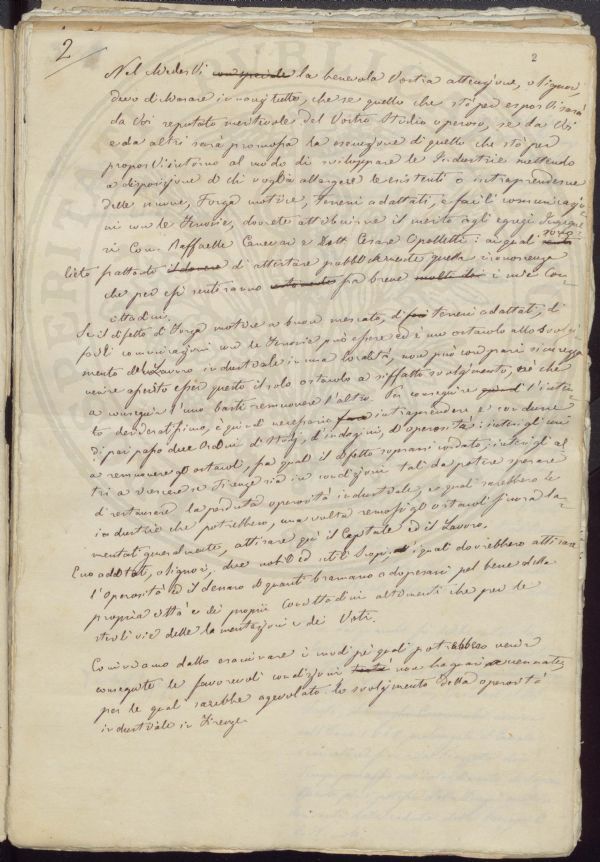 2
2
Nel chiedervi la benevola Vostra attenzione, o Signori
devo dichiarare innanzi tutto, che se quello che stò per esporvi sarà
da Voi reputato meritevole del Vostro Studio operoso, se da Voi
e da altri sarà promossa la esecuzione di quello che stò per
proporvi intorno al modo di sviluppare le Industrie mettendo
a disposizione di chi voglia allargare le esistenti o intraprenderne
delle nuove, Forza motrice, Terreni adattati, e facili comunicazio
ni con le Ferrovie, dovrete attribuirne il merito agli egregi Ingegne
ri Com. Raffaelle Canevari e Dott. Cesare ai quali sono
lieto frattanto il dovere di attestare pubblicamente quella riconoscenza
che per essi sentiranno fra breve molti dei i miei Con
cittadini.
Se il difetto di Forza motrice a buon mercato, di terreni adattati, di
facili comunicazioni con le Ferrovie può essere ed è un ostacolo allo Svolgi
mento del Lavoro industriale in una località, non può con pari sicurezza
venire asserito esser questo il solo ostacolo a siffatto svolgimento, ciò che
a conseguir l'uno basti rimuovere l'altro. Per conseguire l'inten
to desideratissimo, è quindi necessario intraprendere e condurre
di pari passo due Ordini di Studj, d'indagini, d'operosità: intesi gli uni
a rimuovere gli ostacoli, fra quali il difetto soprarricordato; intesi gli al
tri a vedere se Firenze sia in condizioni tali da potere sperare
di restaurare la perduta operosità industriale, e quali sarebbero le
industrie che potrebbero, una volta remossi gli ostacoli finora la-
mentati giustamente, attirare quì il Capitale ed il Lavoro.
Eccovi additati, o Signori, due nobili ed utili Scopi, ai quali dovrebbero attirare
l'operosità ed il denaro di quanti bramano adoperarsi pel bene della
propria città e dei propri Concittadini altrimenti che per le
sterili vie delle lamentazioni e dei Voti.
Cominciamo dallo esaminare i modi pei quali potrebbero venir
conseguite le favorevoli condizioni non ha guari accennate,
per le quali sarebbe agevolato lo svolgimento della operosità
industriale in Firenze.